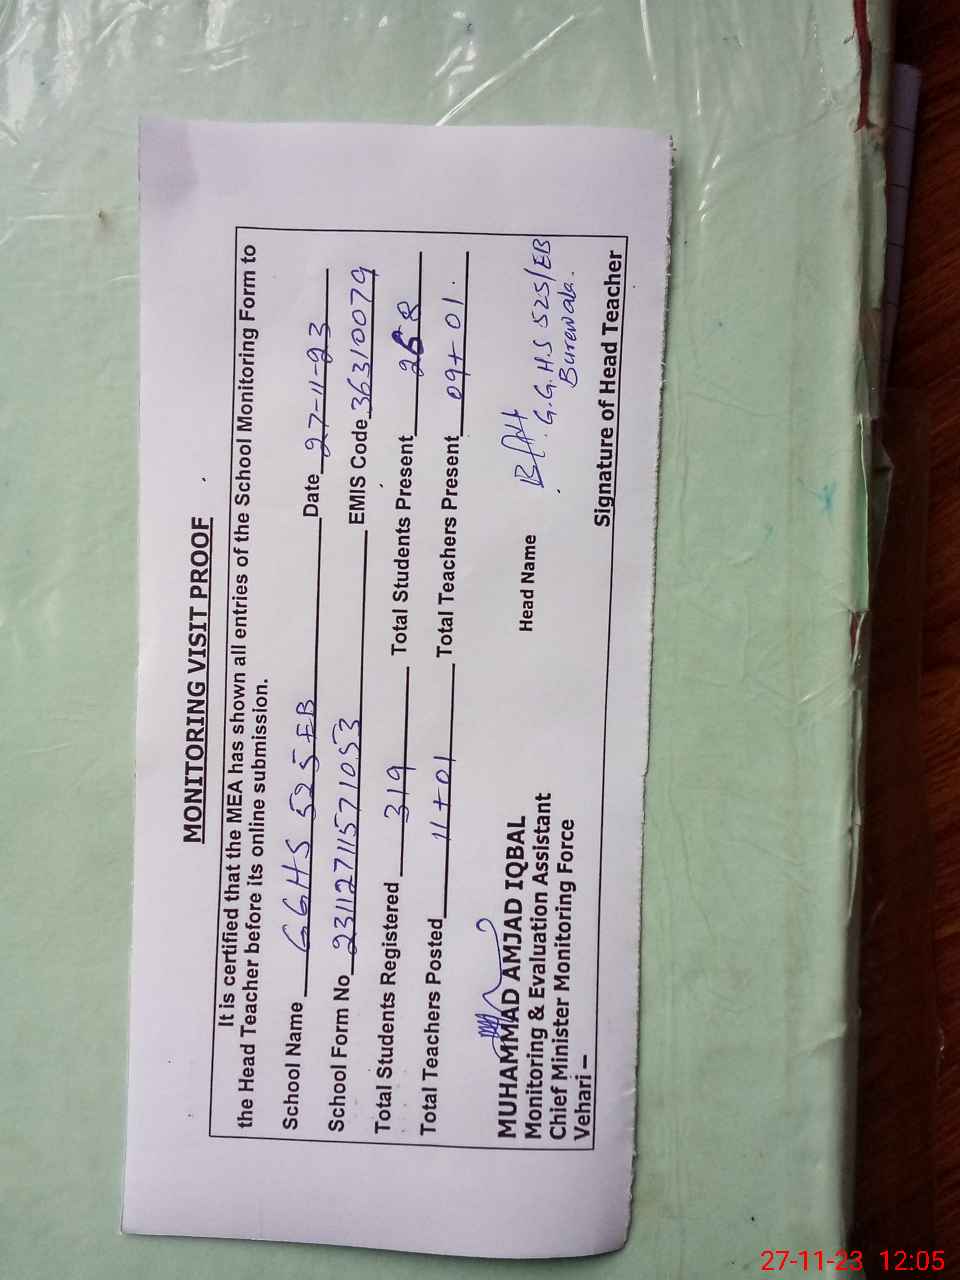 MONITORING VISIT PROOF
It is certified that the MEA has shown all entries of the School Monitoring Form to
the Head Teacher before its online submission.
School Name GGHS 525 EB Date 27-11-23
School Form No 231127115710 53 EMIS Code 36310079
Total Students Registered 319 Total Students Present 268
Total Teachers Posted 11+01 Total Teachers Present 09+01.
MUHAMMAD AMJAD IQBAL
Monitoring & Evaluation Assistant
Chief Minister Monitoring Force
Vehari –
Head Name
G.G.H.S 525/EB
Burewala.
Signature of Head Teacher
27-11-23 12:05